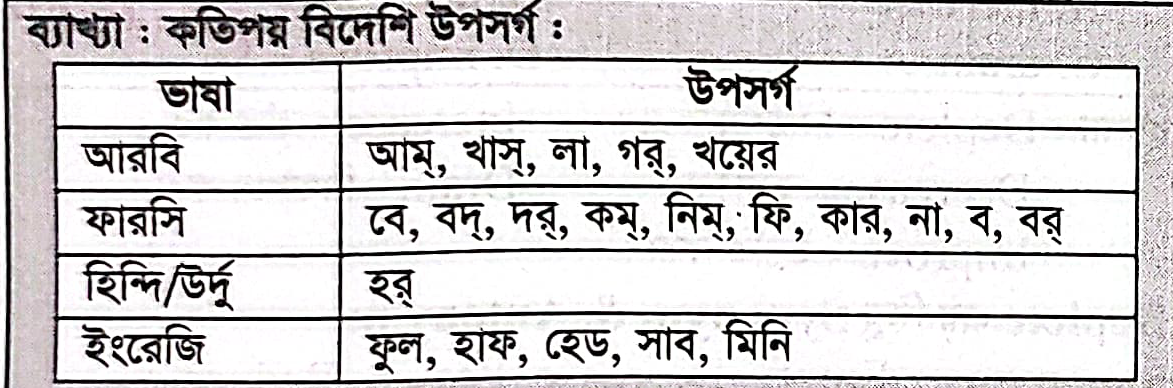 ব্যাখ্যা : কতিপয় বিদেশি উপসর্গ :
ভাষা উপসর্গ
আরবি আম্, খাস্, লা, গর্, খয়ের
ফারসি বে, বদ্, দর্, কম্, নিম্, ফি, কার, না, ব, বর্
হিন্দি/উর্দু হর্
ইংরেজি ফুল, হাফ, হেড, সাব, মিনি